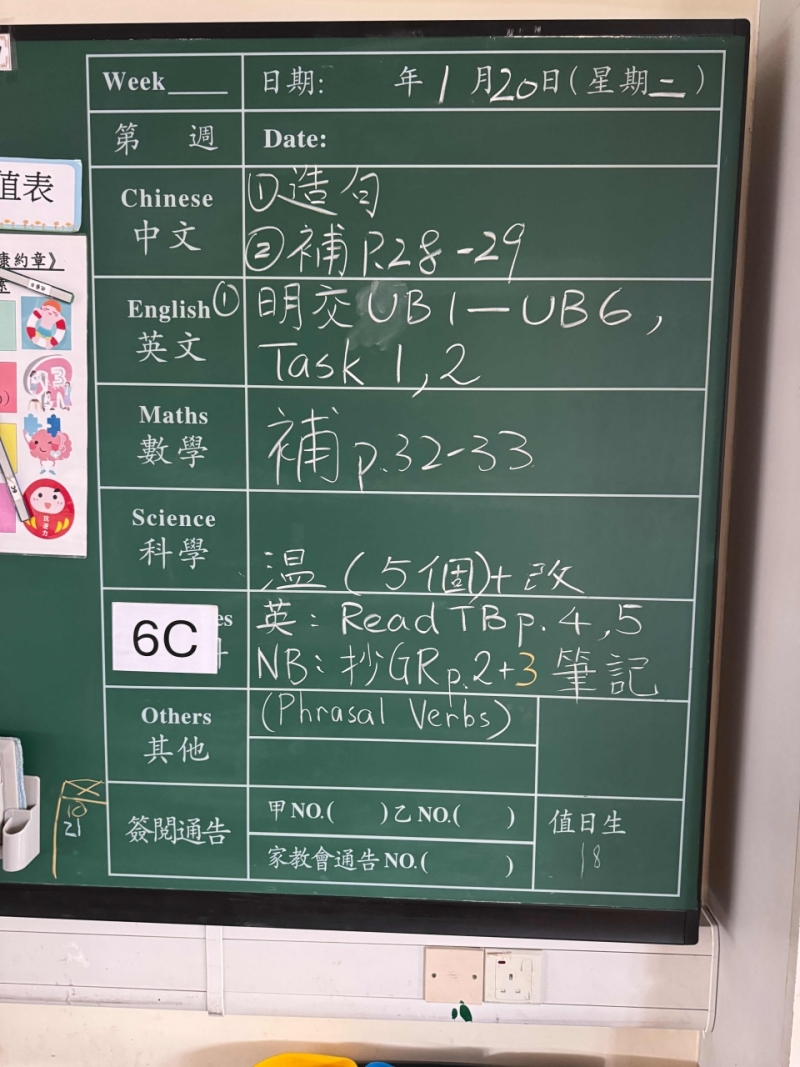 Week____ 日期: 年1月20日(星期二)
第 週 Date:
值表
Chinese ①造句
中文 ②補P.28-29
康約章》
English① 明交UB1—UB6,
英文 Task 1,2
Maths
數學 補p.32-33
Science
科學 温(5個)+改
es 英: Read TB p.4,5
6C NB: 抄GR p.2+3筆記
Others (Phrasal Verbs)
其他
簽閱通告 甲NO.( )乙NO.( ) 值日生
家教會通告NO.( ) 18
10
21